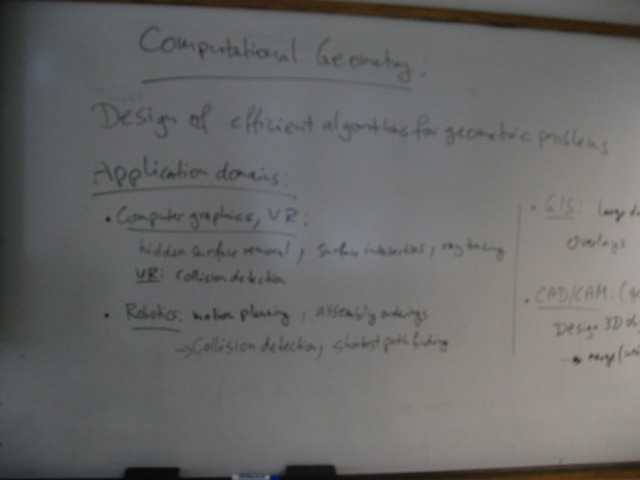 Computational Geometry:
Design of efficient algorithms for geometric problems
Application domains:
• Computer graphics, VR:
hidden surface removal, surface intersections, ray tracing
VR: Collision detection
• Robotics: motion planning, assembly orderings
→ Collision detection, shortest path finding
• GIS: large da
Overlays
• CAD/CAM: (
Design 3D
→ merge (uni